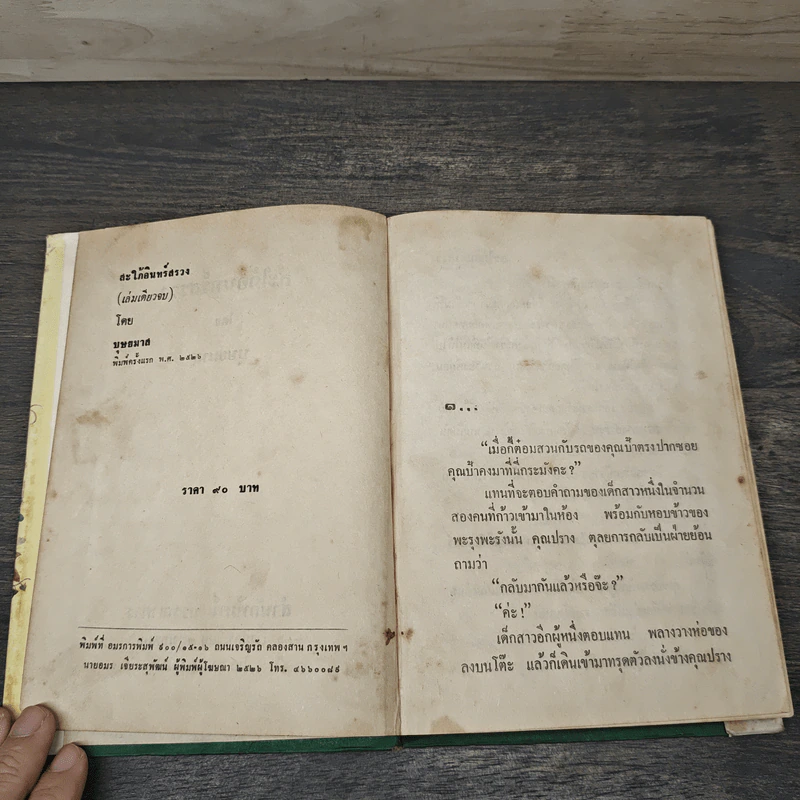 สะใภ้อินทร์สรวง
(เล่มเดียวจบ)
โดย
บุษยมาส
พิมพ์ครั้งแรก พ.ศ. ๒๕๒๖
ราคา ๙๐ บาท
พิมพ์ที่ อมรการพิมพ์ ๙๐๐/๑๕-๑๖ ถนนเจริญรัถ คลองสาน กรุงเทพ ฯ
นายอมร เจียระสุพัฒน์ ผู้พิมพ์ผู้โฆษณา ๒๕๒๖ โทร. ๔๖๖๐๐๘๙
๑...
“เมื่อกี้ต๋อมสวนกับรถของคุณป้าตรงปากซอย
คุณป้าคงมาที่นี่กระมังคะ?”
แทนที่จะตอบคำถามของเด็กสาวหนึ่งในจำนวน
สองคนที่ก้าวเข้ามาในห้อง พร้อมกับหอบข้าวของ
พะรุงพะรังนั้น คุณปราง ตุลยการกลับเป็นฝ่ายย้อน
ถามว่า
“กลับมากันแล้วหรือจ๊ะ?”
“ค่ะ!”
เด็กสาวอีกผู้หนึ่งตอบแทน พลางวางห่อของ
ลงบนโต๊ะ แล้วก็เดินเข้ามาทรุดตัวลงนั่งข้างคุณปราง